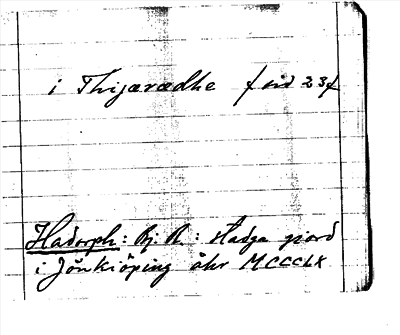 i Thijærædhe f sid 23 f
Hadorph: Bj. R.: Stadga giord
i Jönkiöping åhr MCCCLX